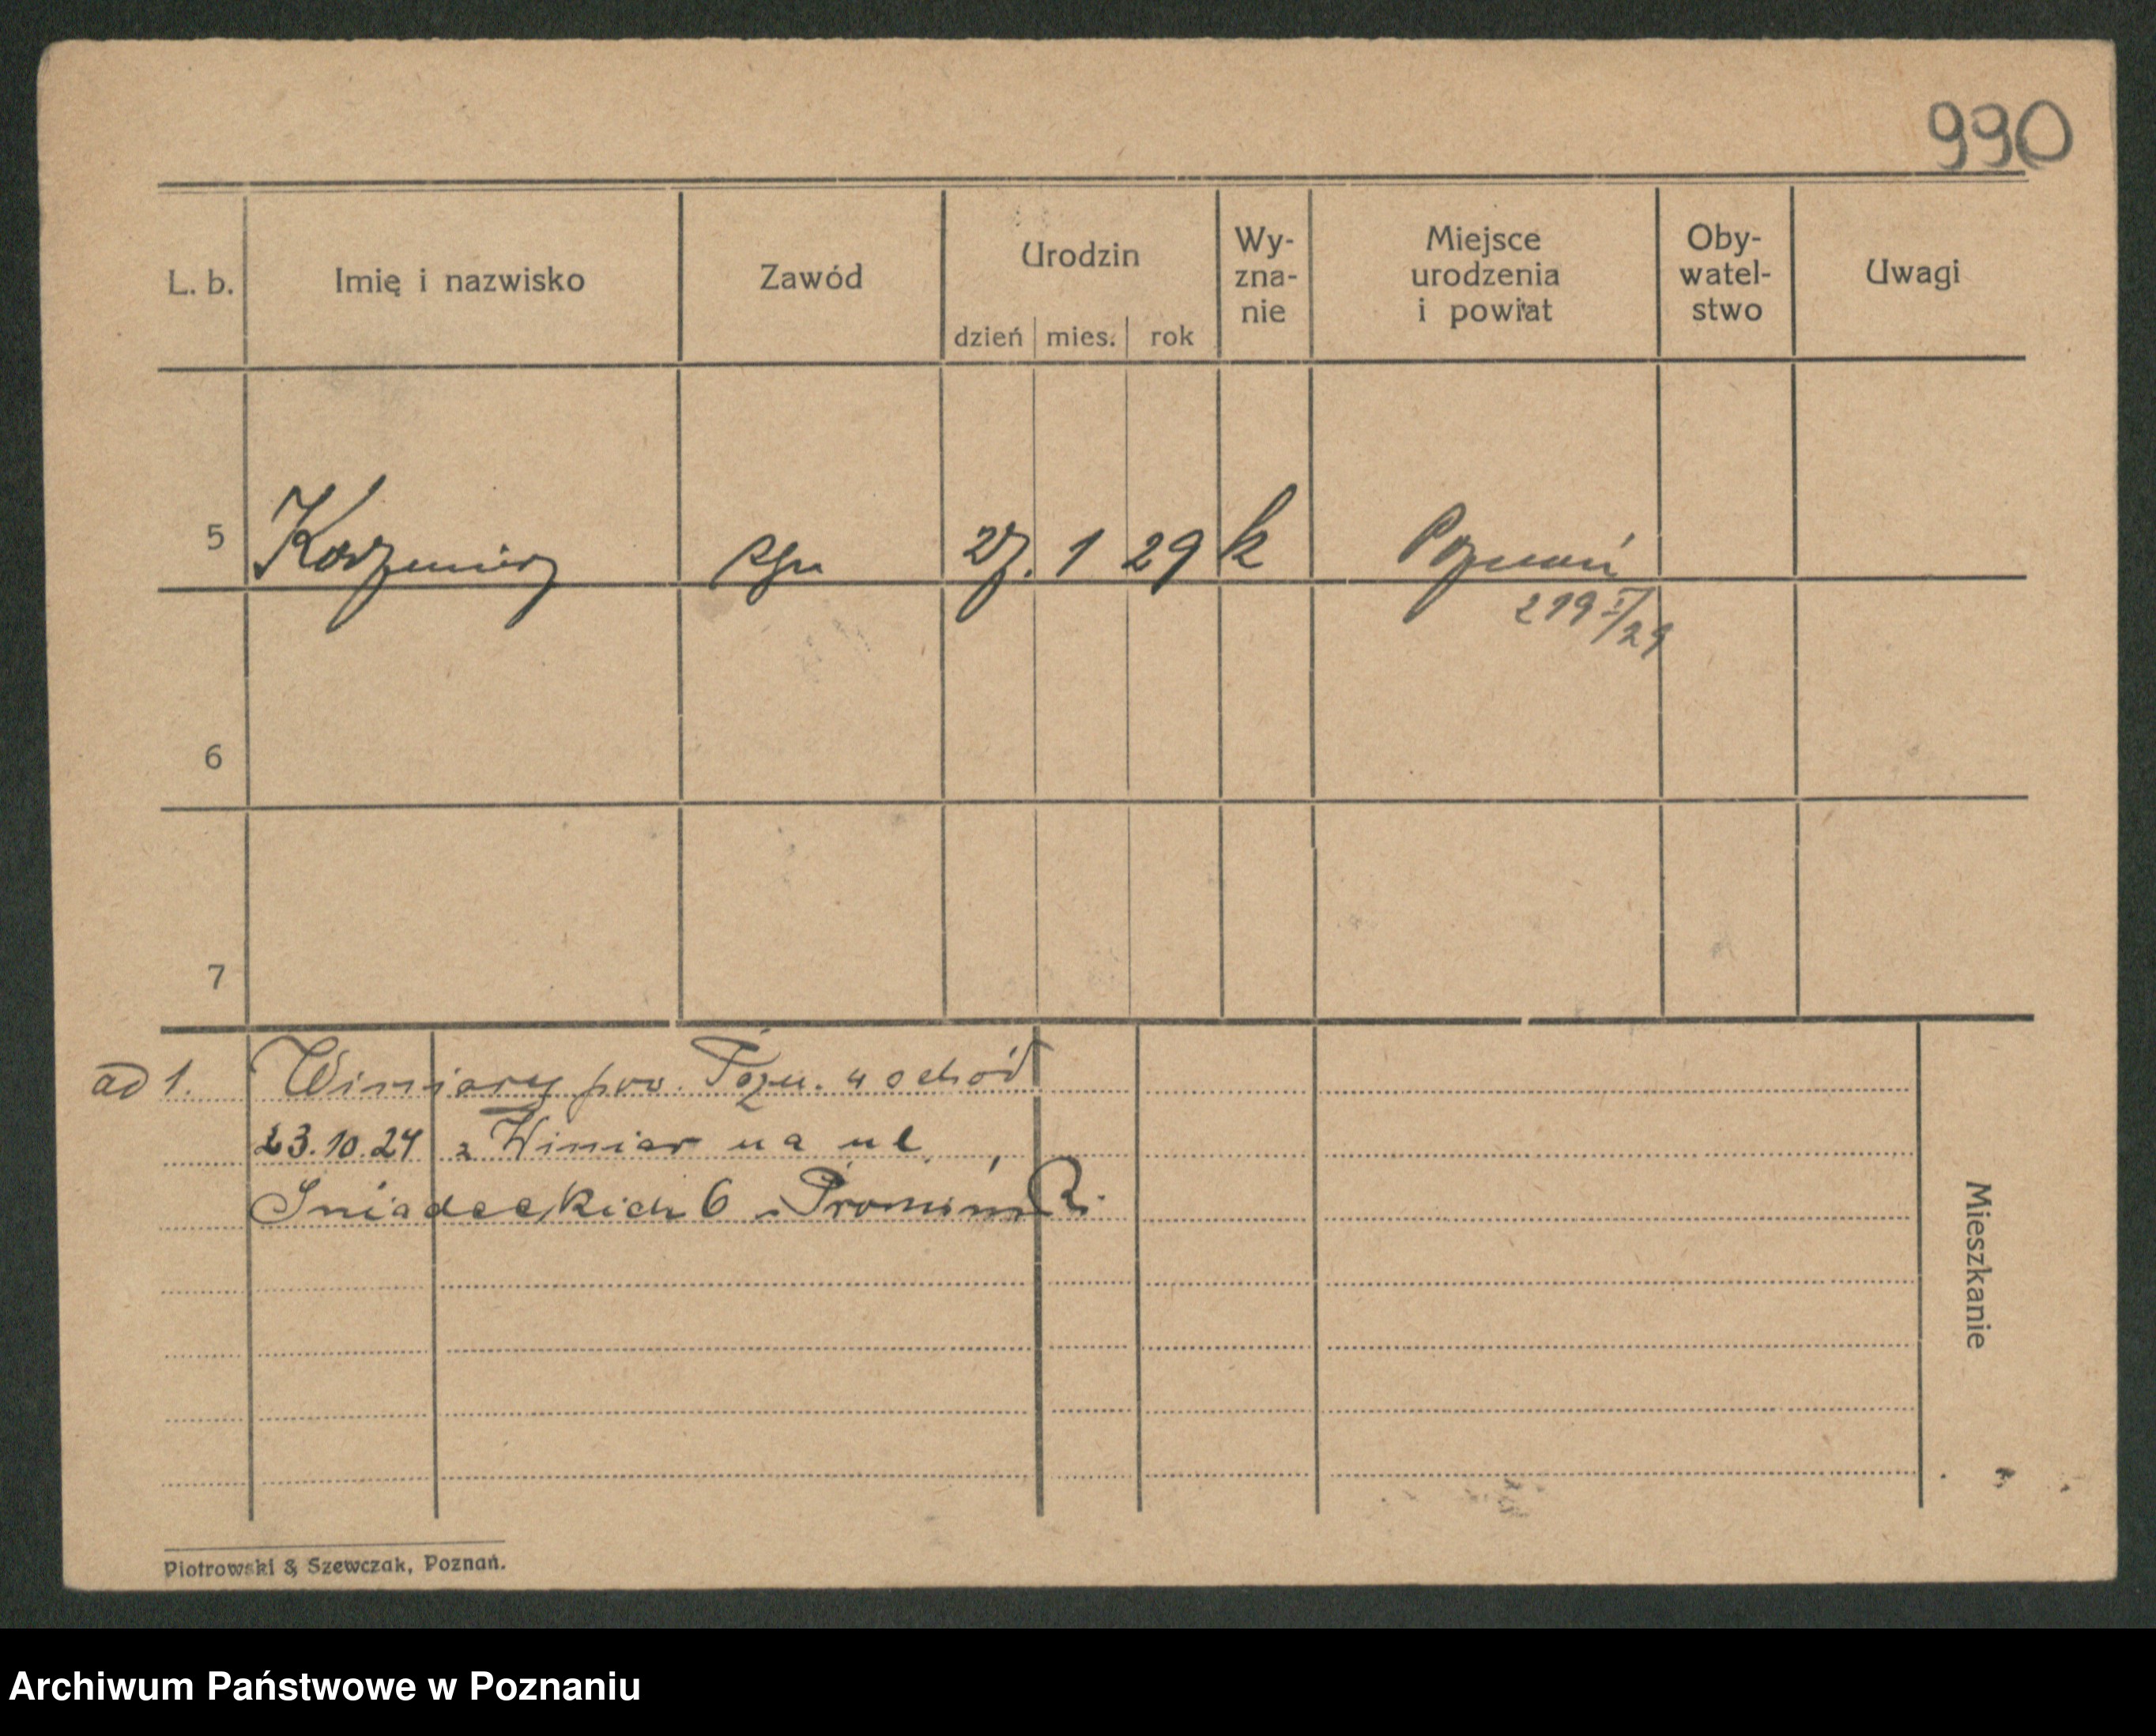 990
L. b. Imię i nazwisko Zawód Urodzin Wy- Miejsce Oby- Uwagi
zna- urodzenia watel-
nie i powiat stwo
dzień mies. rok
5 Kazimierz 27. 1 29 k Poznań
219 I/29
6
7
ad 1. Winiary pow. Pozn. wschód
23.10.24 z Winiar na ul
Śniadeckich 6
Mieszkanie
Piotrowski & Szewczak, Poznań.
Archiwum Państwowe w Poznaniu